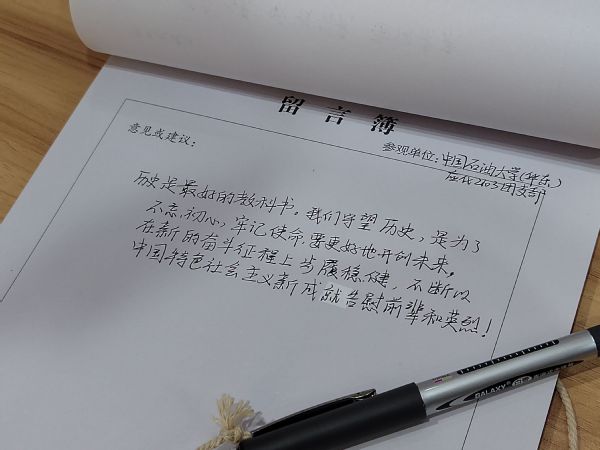 留言簿
意见或建议：
参观单位：中国石油大学(华东)
2103团支部
历史是最好的教科书。我们守望历史，是为了
不忘初心，牢记使命，要更好地开创未来，
在新的奋斗征程上步履稳健，不断以
中国特色社会主义新成就告慰前辈和英烈！
GALAXY